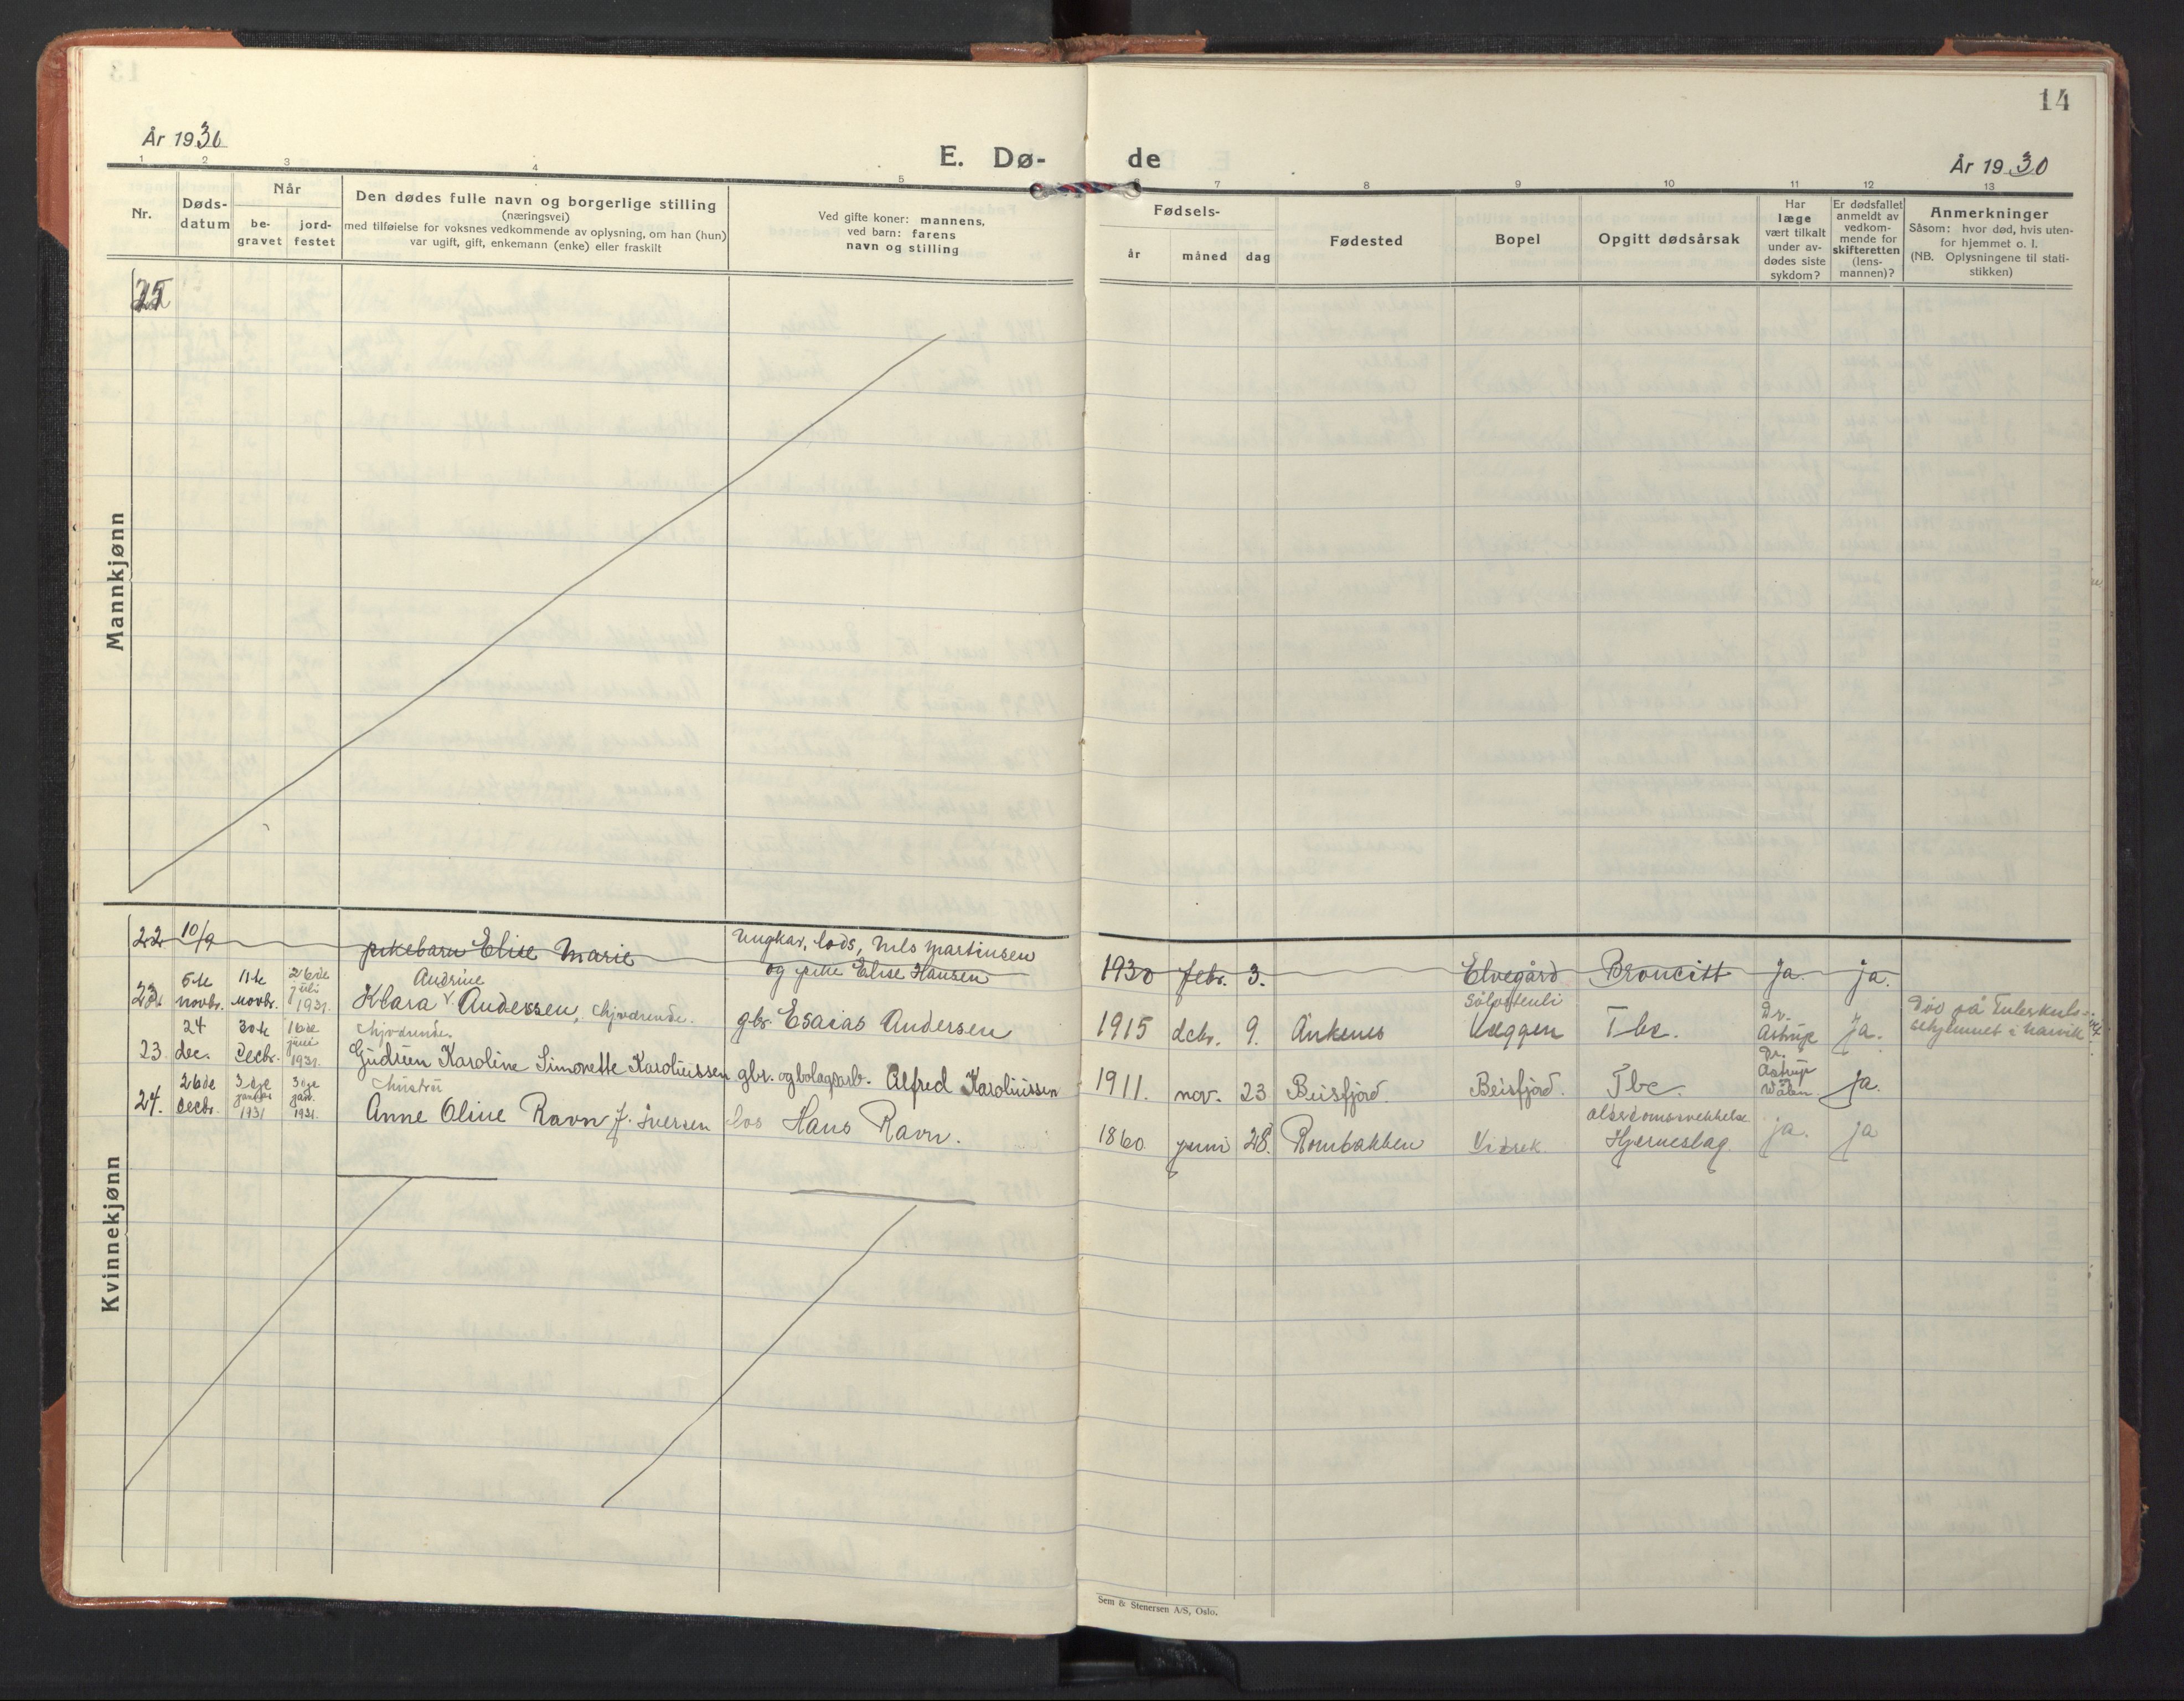 14
År 1930
E. Dø-
de
År 1930
1 2 3 4 5 6 7 8 9 10 11 12 13
Nr.
Døds-
datum
Når
be-
gravet
jord-
festet
Den dødes fulle navn og borgerlige stilling
(næringsvei)
med tilføielse for voksnes vedkommende av oplysning, om han (hun)
var ugift, gift, enkemann (enke) eller fraskilt
Ved gifte koner: mannens,
ved barn: farens
navn og stilling
Fødsels-
år måned dag
Fødested
Bopel
Opgitt dødsårsak
Har
læge
vært tilkalt
under av-
dødes siste
sykdom?
Er dødsfallet
anmeldt av
vedkom-
mende for
skifteretten
(lens-
mannen)?
Anmerkninger
Såsom: hvor død, hvis uten-
for hjemmet o. l.
(NB. Oplysningene til stati-
stikken)
Mannkjønn
25
Kvinnekjønn
22 10/9 pikebarn Elise Marie
Ungkar, lods, Nils Martinsen
og pike Elise Hansen
1930 febr. 3. Elvegård Broncitt ja. ja.
5te 11te 26de
juli
Andrine
Sølvstenli
22 novbr. novbr. 1931. Klara Anderssen, hjværende. gbr. Esaias Andersen 1915 dcbr. 9. Ankenes Væggen Tbc. Dr.
Astrup ja.
Død på Tuberkulo-
sehjemmet i Narvik
24 30te 16de
juni
hjværende.
23. dec. Decbr. 1931. Gudrun Karoline Simonette Karoliussen gbr. og bolagsarb. Alfred Karoliussen 1911. nov. 23 Beisfjord. Beisfjord. Tbc. Dr.
Astrup
og
ja.
26de 3dje
januar
3dje
jan.
hustru
24. Decbr. 1931 1931. Anne Oline Ravn f. Iversen los Hans Ravn. 1860. juni 28. Rombakken Vidrek alderdomssvekkelse
Hjerneslag ja. ja
Sem & Stenersen A/S, Oslo.